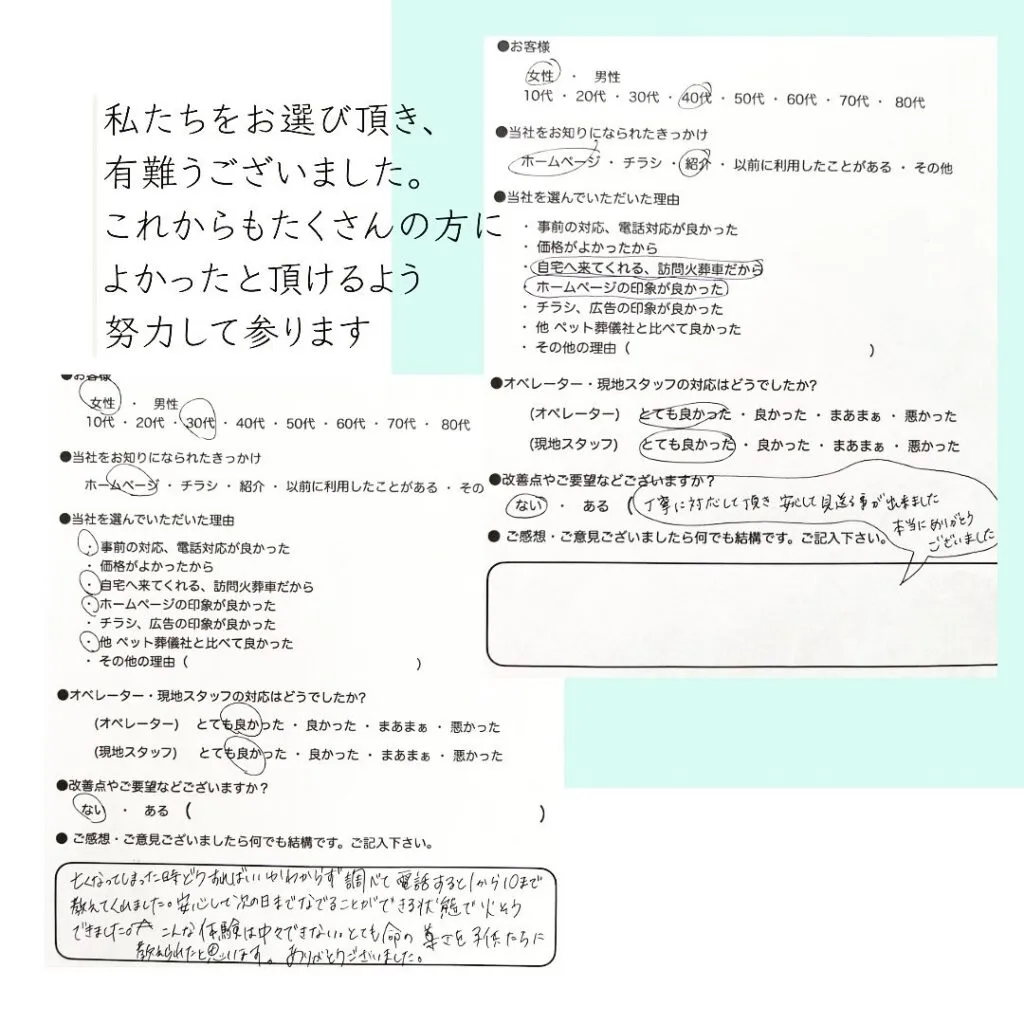 私たちをお選び頂き、
有難うございました。
これからもたくさんの方に
よかったと頂けるよう
努力して参ります
●お客様
女性 ・ 男性
10代 ・ 20代 ・ 30代 ・ 40代 ・ 50代 ・ 60代 ・ 70代 ・ 80代
●当社をお知りになられたきっかけ
ホームページ ・ チラシ ・ 紹介 ・ 以前に利用したことがある ・ その他
●当社を選んでいただいた理由
・ 事前の対応、電話対応が良かった
・ 価格がよかったから
・ 自宅へ来てくれる、訪問火葬車だから
・ ホームページの印象が良かった
・ チラシ、広告の印象が良かった
・ 他 ペット葬儀社と比べて良かった
・ その他の理由 ( )
●オペレーター・現地スタッフの対応はどうでしたか?
(オペレーター) とても良かった ・ 良かった ・ まあまぁ ・ 悪かった
(現地スタッフ) とても良かった ・ 良かった ・ まあまぁ ・ 悪かった
●改善点やご要望などございますか?
ない ・ ある ( 丁寧に対応して頂き 安心して見送る事が出来ました
本当にありがとう
ございました
● ご感想・ご意見ございましたら何でも結構です。ご記入下さい。
●お客様
女性 ・ 男性
10代 ・ 20代 ・ 30代 ・ 40代 ・ 50代 ・ 60代 ・ 70代 ・ 80代
●当社をお知りになられたきっかけ
ホームページ ・ チラシ ・ 紹介 ・ 以前に利用したことがある ・ その
●当社を選んでいただいた理由
・ 事前の対応、電話対応が良かった
・ 価格がよかったから
・ 自宅へ来てくれる、訪問火葬車だから
・ ホームページの印象が良かった
・ チラシ、広告の印象が良かった
・ 他 ペット葬儀社と比べて良かった
・ その他の理由 ( )
●オペレーター・現地スタッフの対応はどうでしたか?
(オペレーター) とても良かった ・ 良かった ・ まあまぁ ・ 悪かった
(現地スタッフ) とても良かった ・ 良かった ・ まあまぁ ・ 悪かった
●改善点やご要望などございますか?
ない ・ ある ( )
● ご感想・ご意見ございましたら何でも結構です。ご記入下さい。
亡くなってしまった時どうすればいいかわからず調べて電話すると1から10まで
教えてくれました。安心して次の日までなでることができる状態で火そう
できました。 こんな体験は中々できない。とても命の尊さを子供たちに
教えられたと思います。ありがとうございました。